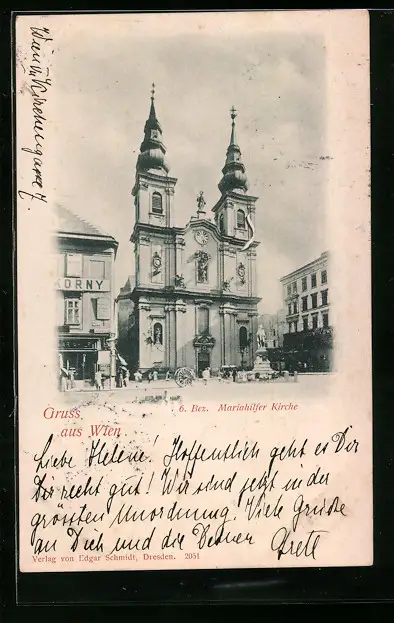 Wien, Kirchengasse 7.
KORNY
6. Bez. Mariahilfer Kirche
Gruss
aus Wien
Liebe Helene! Hoffentlich geht es Dir
Dir recht gut! Wir sind jetzt in der
grössten Unordnung. Viele Grüße
an Dich und die Deinen
Grete
Verlag von Edgar Schmidt, Dresden. 2051